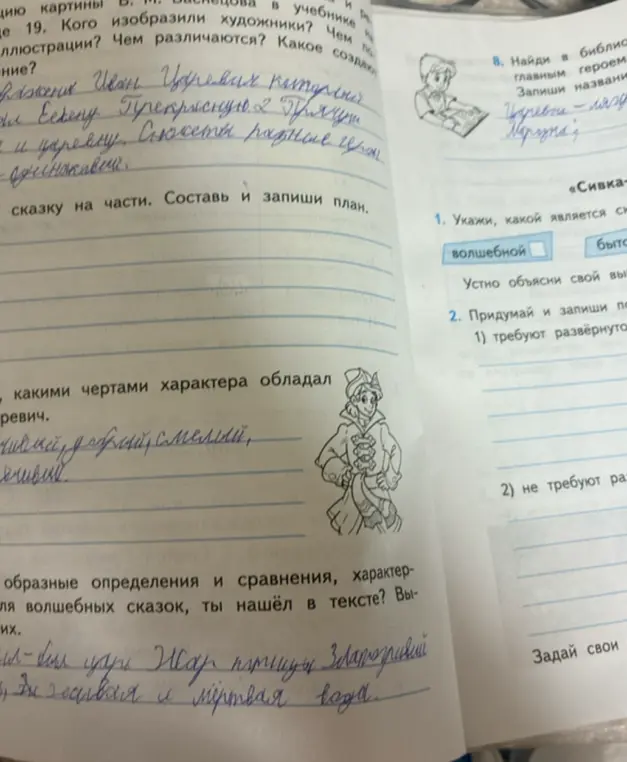 цию картины В. М. Васнецова в учебнике и
це 19. Кого изобразили художники? Чем
ллюстрации? Чем различаются? Какое создаю
ние?
Иван Царевич который
Елену Прекрасную
и царевну. Сюжеты разные герои
одинаковый.
сказку на части. Составь и запиши план.
, какими чертами характера обладал
ревич.
, добрый, смелый,
образные определения и сравнения, характер-
ля волшебных сказок, ты нашёл в тексте? Вы-
их.
ил-был царь Жар птицы Златогривый
живая и мёртвая вода.
8. Найди в библио
главным героем
Запиши названи
Царевна - лягу
«Сивка-
1. Укажи, какой является ск
волшебной
быто
Устно объясни свой вы
2. Придумай и запиши п
1) требуют развёрнуто
2) не требуют ра
Задай свои